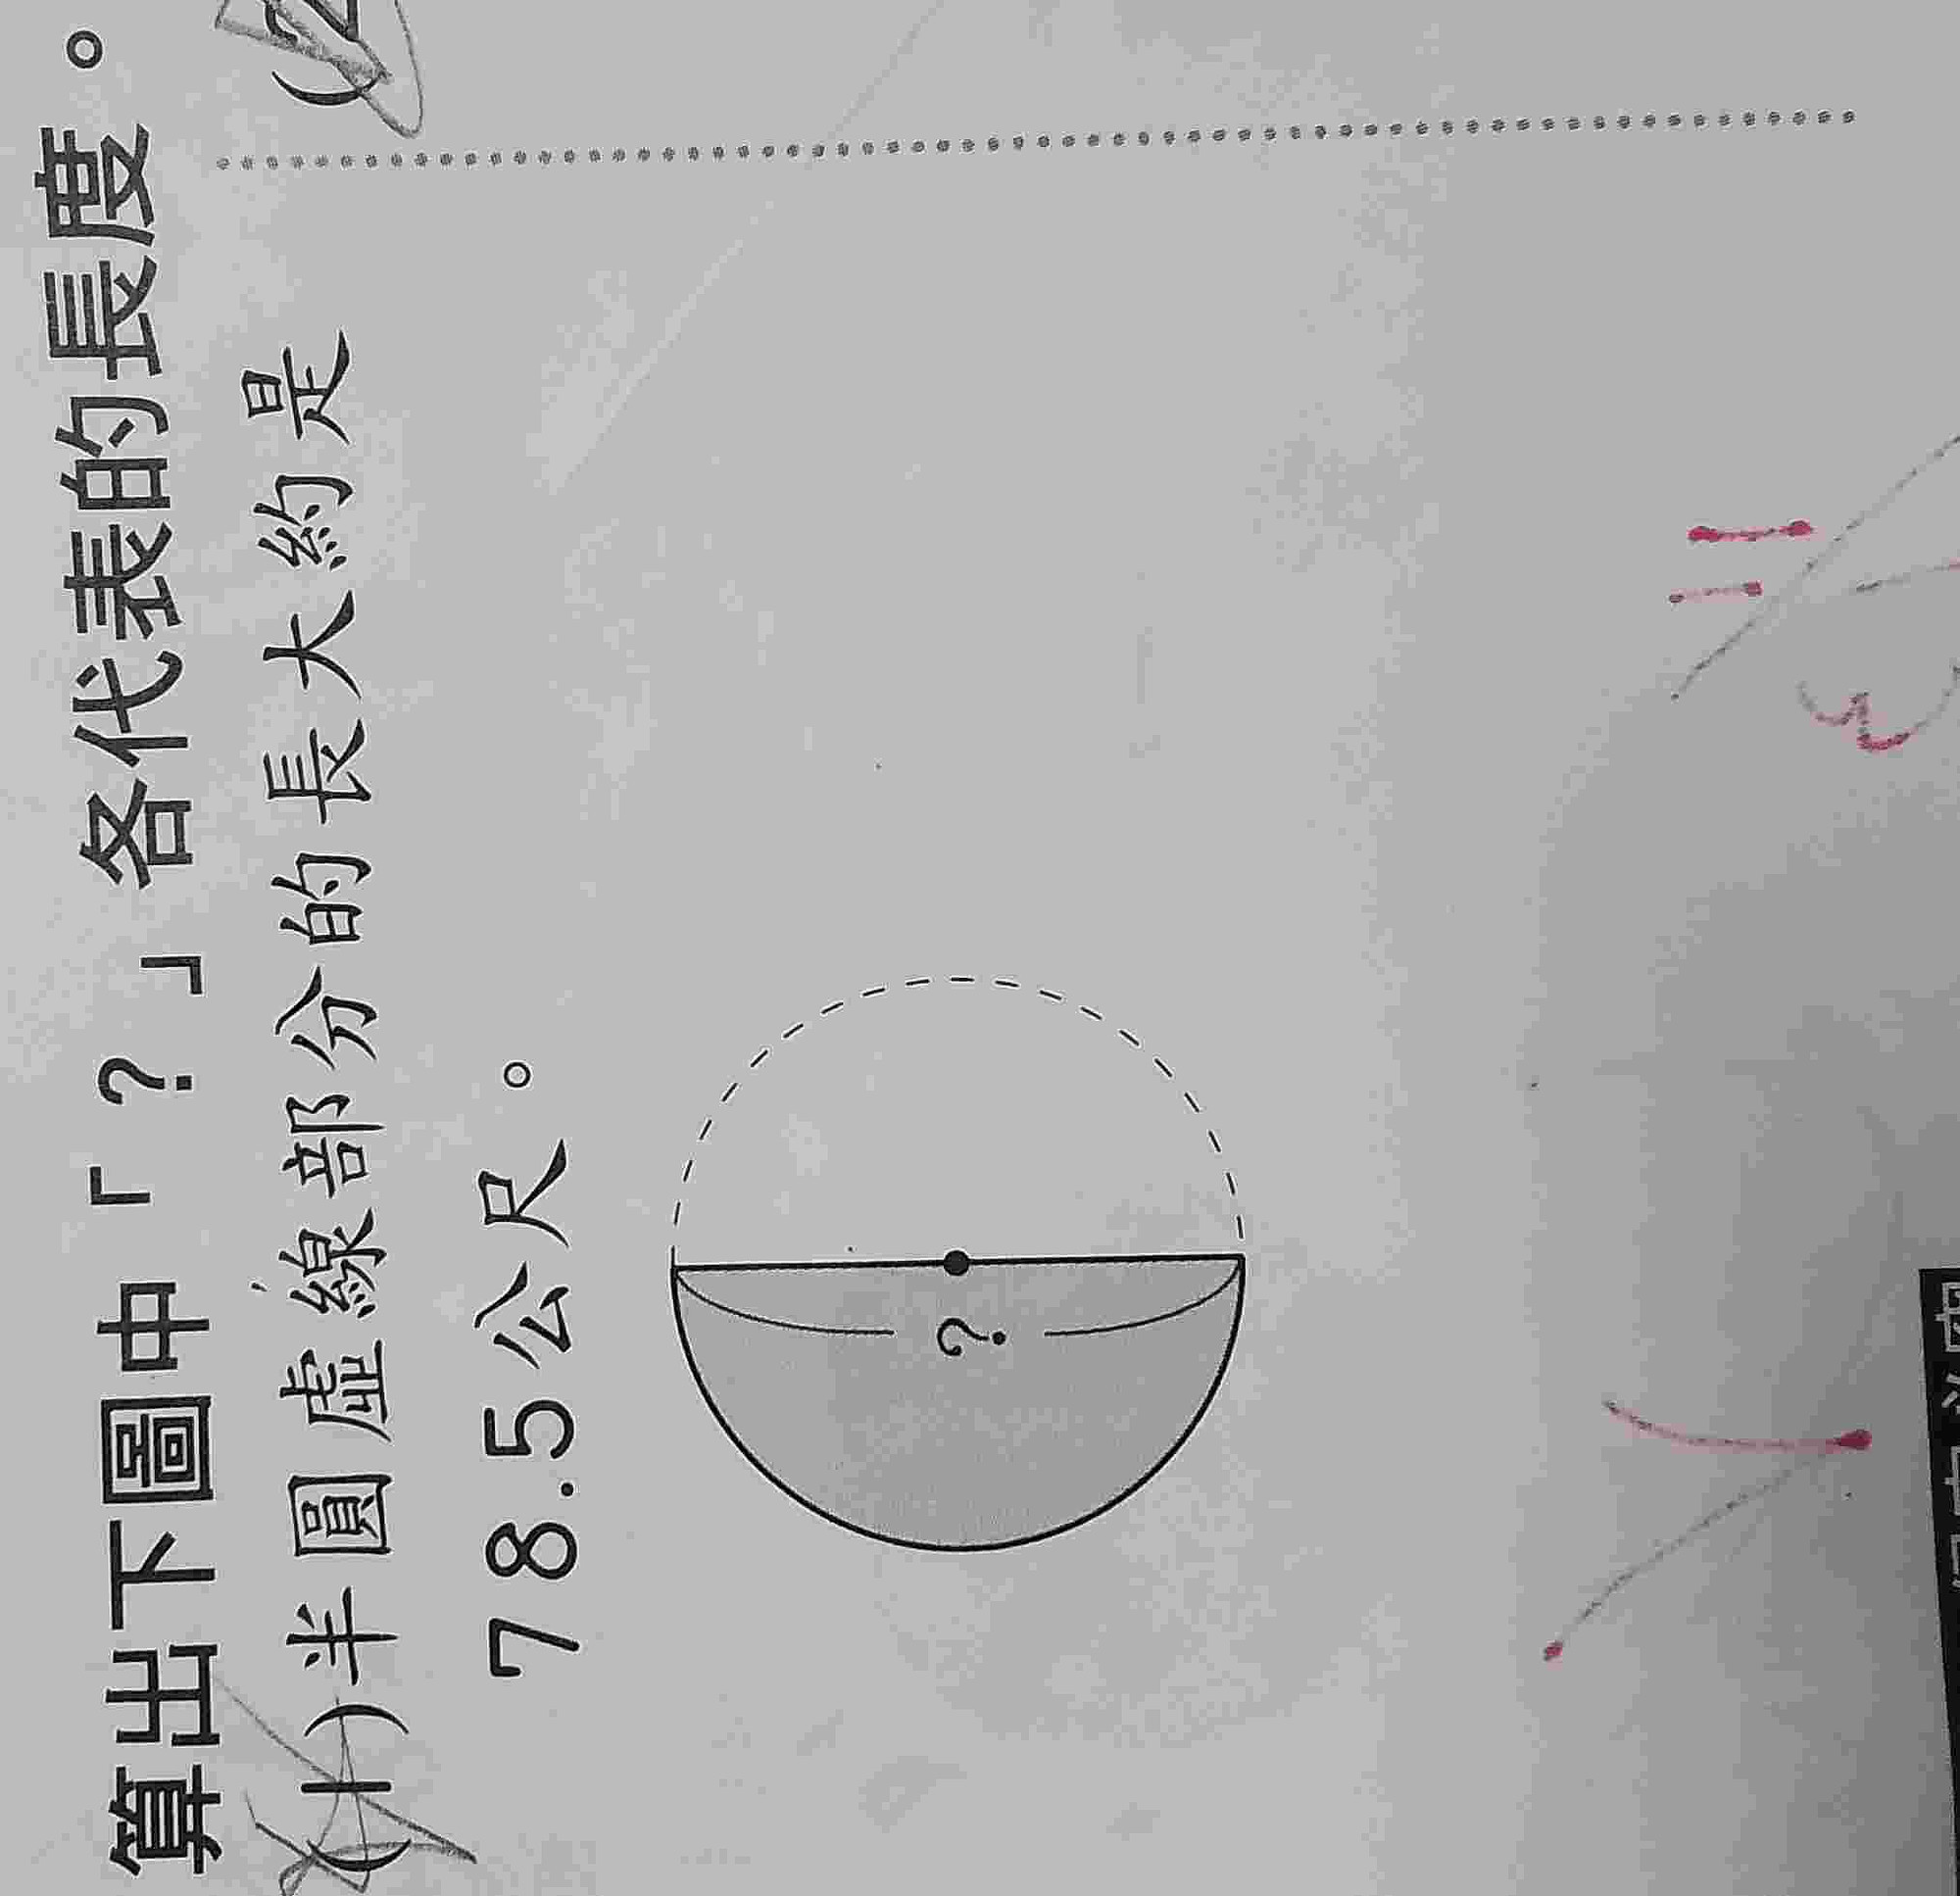 算出下圖中「?」各代表的長度。
(1)半圓虛線部分的長大約是
78.5公尺。
?
(2